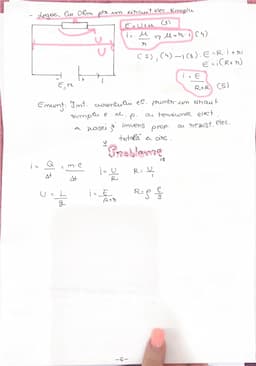 - Legea lui Ohm pt. un circuit el. simplu
E = U + u (3)
i = u/r ⇒ u = r · i (4)
(2), (4) → (3): E = R i + r i
E = i (R + r)
i = E/(R+r) (5)
U
u
E, r
Enunț: Int. curentului el. printr-un circuit
simplu e d. p. cu tensiunea elect
a sursei și invers prop. cu rezist. elec.
totală a circ.
Probleme
i = Q/Δt = n·e/Δt i = U/R R = U/i
U = L/q i = E/(R+r) R = ρ ℓ/S
-6-